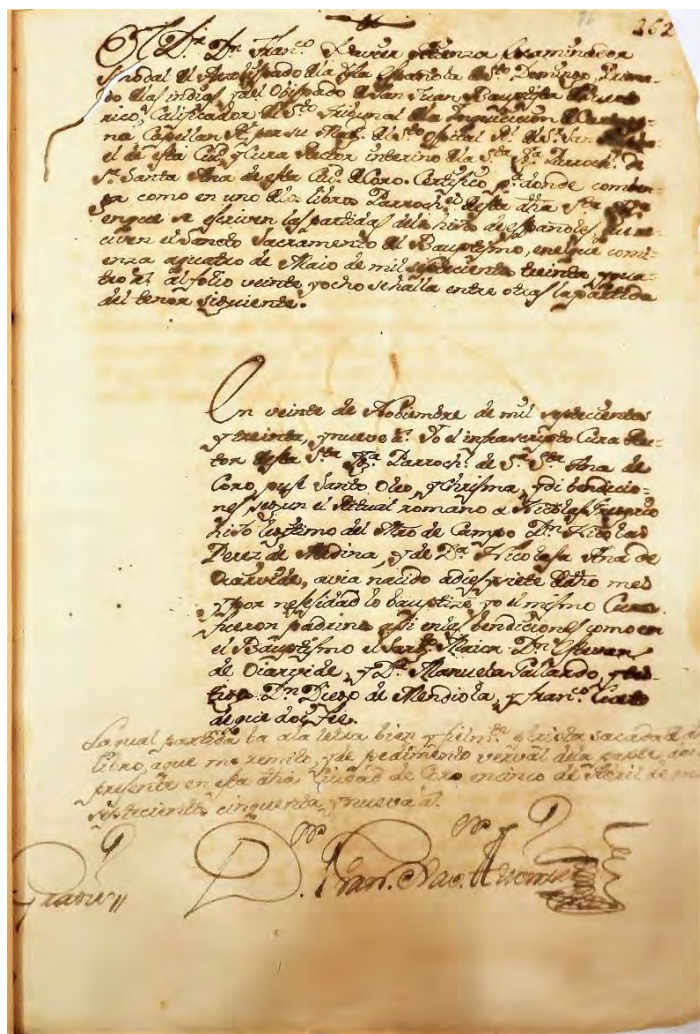 262
El D.r D.n Fran.co Xavier Examinador
Sinodal del Arzobispado de la Isla Española de S.to Domingo, Prima-
do de las indias, y del Obispado de San Juan Bauptista de Puerto
rico, Calificador del S.to Tribunal de la Inquicicion de Cartage-
na Capellan R.l por su Mag.d del S.to Ospital R.l de S.r San
el de esta Ciu.d y Cura Rector interino de la S.ta Ig.a Parroch.l de
S.ra Santa Ana de esta Ciu.d de Coro. Certifico p.a donde comben-
ga como en uno de los libros Parroch.s de esta dha S.ta Ig.a
en que se escriven las partidas de los niños de españoles, que re-
civen el Sancto Sacramento del Bauptismo, en el que comi-
enza a quatro de Maio de mil setecientos treinta, y qua-
tro a.s al folio veinte, y ocho se halla entre otras la partida
del tenor siguiente.
En veinte de Nobiembre de mil setecientos
y treinta, y nueve a.s Yo el infrascripto Cura Rec-
tor de esta S.ta Ig.a Parroch.l de S.ra S.ta Ana de
Coro, puse Santo Oleo, y Chrisma, y di bendicio-
nes segun el Ritual romano a Nicolas Gregorio
hijo lexitimo del Mro de Campo D.n Nicolas
Perez de Medina, y de D.a Nicolasa Ana de
Oiarvide, avia nacido a diesysiete de dho mes
y por nessidad lo bauptize yo el mismo Cura
fueron padrinos assi en las bendiciones como en
el Bauptismo el Sarg.to Maior D.n Estevan
de Oiarvide, y D.a Manuela Gallardo, y tes-
tigos D.n Diego de Mendiola, y Fran.co
de que doy fee.
La qual partida ba a la letra bien y fielm.te escripta sacada de d
libro, a que me remito, y de pedimento verval de la parte, doy
presente en esta dha Ciudad de Coro en cinco de Abril de mil
setecientos cinquenta, y nueve a.s
D.r Fran.co Xav.r